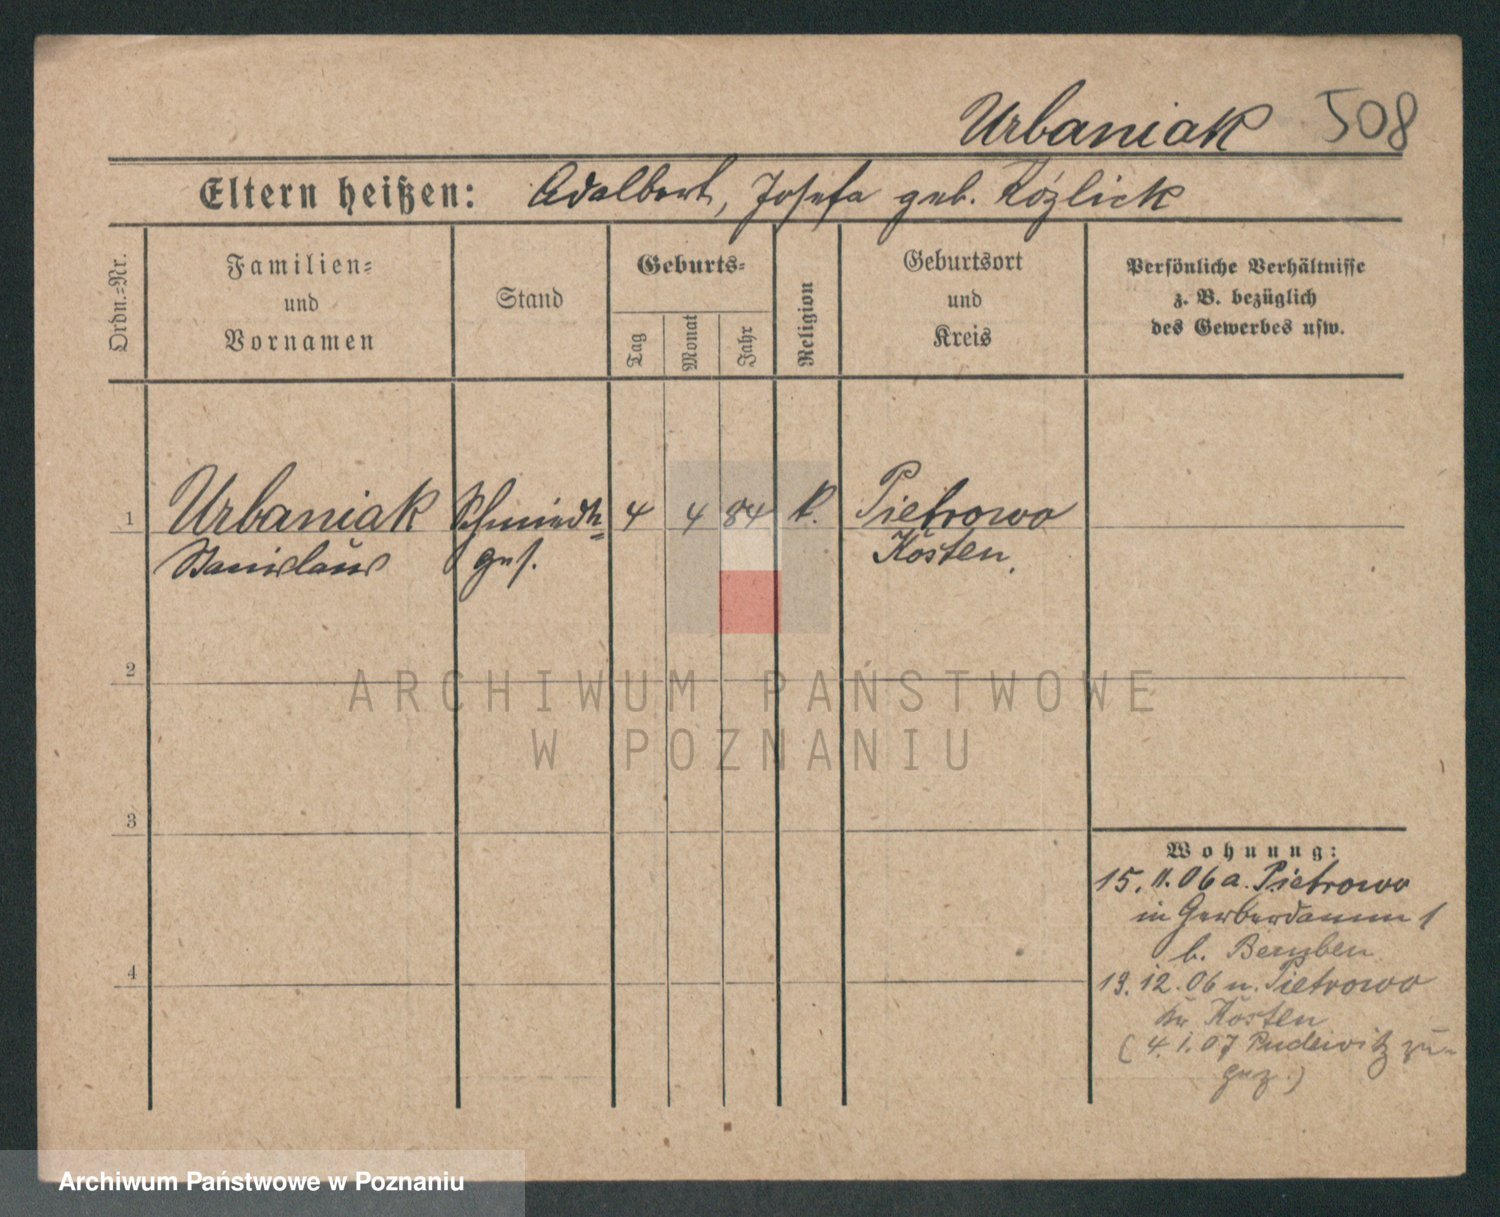 Urbaniak 508
Eltern heißen: Adalbert, Josefa geb. Kózlick
Ordn.=Nr.
Familien=
und
Vornamen
Stand
Geburts=
Tag
Monat
Jahr
Religion
Geburtsort
und
Kreis
Persönliche Verhältnisse
z. B. bezüglich
des Gewerbes usw.
1 Urbaniak Schmiede= 4 4 84 k. Pietrowo
Stanislaus ges. Kosten.
2
ARCHIWUM PAŃSTWOWE
W POZNANIU
3
Wohnung:
15. 11. 06 a. Pietrowo
in Gerberdamm 1
b.
4
13. 12. 06 n. Pietrowo
Kr Kosten
(4. 1. 07 Pudewitz zu=
gez.)
Archiwum Państwowe w Poznaniu